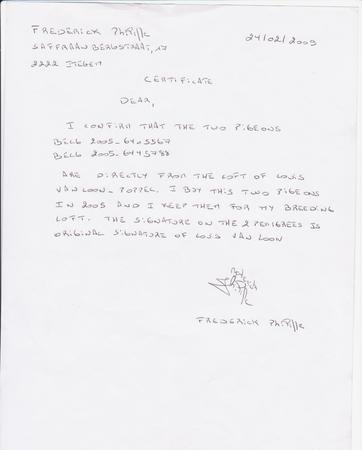 FREDERICK Philippe
SAFFRAAN BERGSTRAAT, 17
2222 ITEGEM
24/02/2009
CERTIFICATE
DEAR,
I CONFIRM THAT THE TWO PIGEONS
BELG 2005-6405567
BELG 2005-6445788
ARE DIRECTLY FROM THE LOFT OF LOUIS
VAN LOON - POPPEL. I BUY THIS TWO PIGEONS
IN 2005 AND I KEEP THEM FOR MY BREEDING
LOFT. THE SIGNATURE ON THE 2 PEDIGREES IS
ORIGINAL SIGNATURE OF LOUIS VAN LOON
FREDERICK Philippe